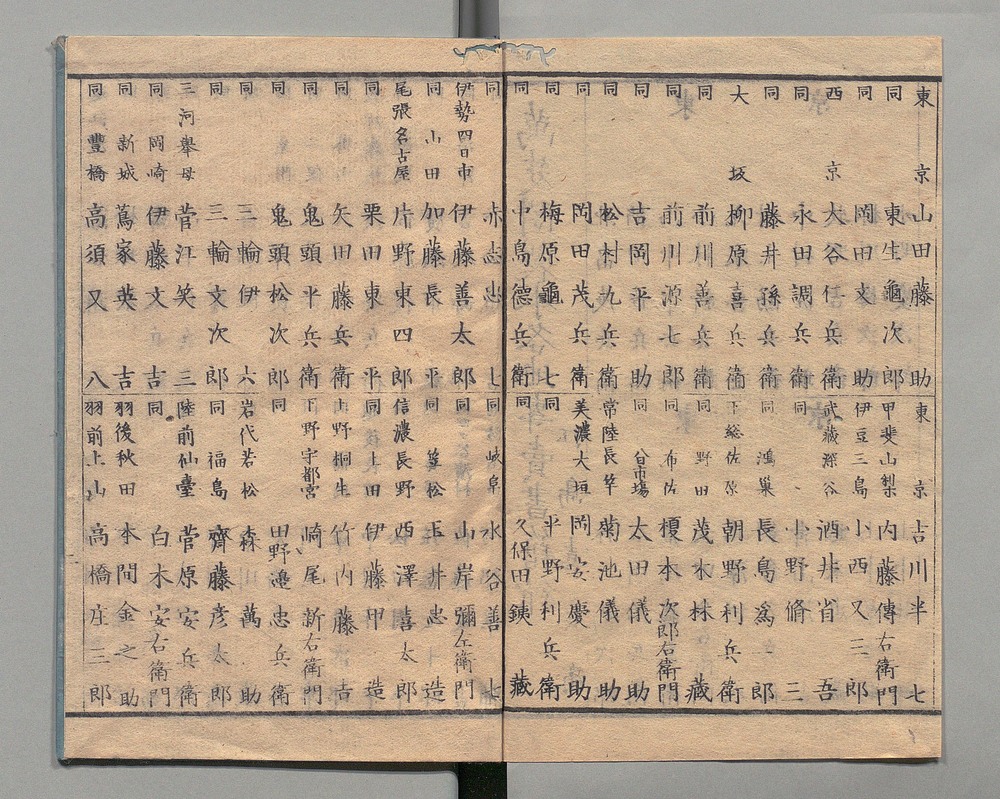 東京 山田藤助
同 東生亀次郎
同 岡田文助
西京 大谷仁兵衛
同 永田調兵衛
同 藤井孫兵衛
大坂 柳原喜兵衛
同 前川善兵衛
同 前川源七郎
同 吉岡平助
同 松村九兵衛
同 岡田茂兵衛
同 梅原亀七
同 中島德兵衛
東京 吉川半七
甲斐山梨 内藤傳右衛門
伊豆三島 小西又三郎
武蔵深谷 酒井省吾
同 小野脩三
同 鴻巣 長島為一郎
下総佐原 朝野利兵衛
同 野田 茂木林藏
同 布佐 榎本次郎右衛門
同 太田儀助
常陸長竿 菊池儀助
美濃大垣 岡安慶助
同 平野利兵衛
同 久保田銕藏
同 赤志忠七
伊勢四日市 伊藤善太郎
同 山田 加藤長平
尾張名古屋 片野東四郎
同 栗田東平
同 矢田藤兵衛
同 鬼頭平兵衛
同 鬼頭松次郎
同 三輪伊六
同 三輪文次郎
三河擧母 菅江笑三
同 岡崎 伊藤文吉
同 新城 蔦家英吉
同 豐橋 高須又八
同 岐阜 水谷善七
同 山岸彌左衛門
同 笠松 玉井忠造
信濃長野 西澤喜太郎
同 上田 伊藤甲造
上野桐生 竹内藤吉
下野宇都宮 崎尾新右衛門
同 田野邉忠兵衛
岩代若松 森萬助
同 福島 齊藤彦太郎
陸前仙臺 菅原安兵衛
同 白木安右衛門
羽後秋田 本間金之助
羽前上山 高橋庄三郎